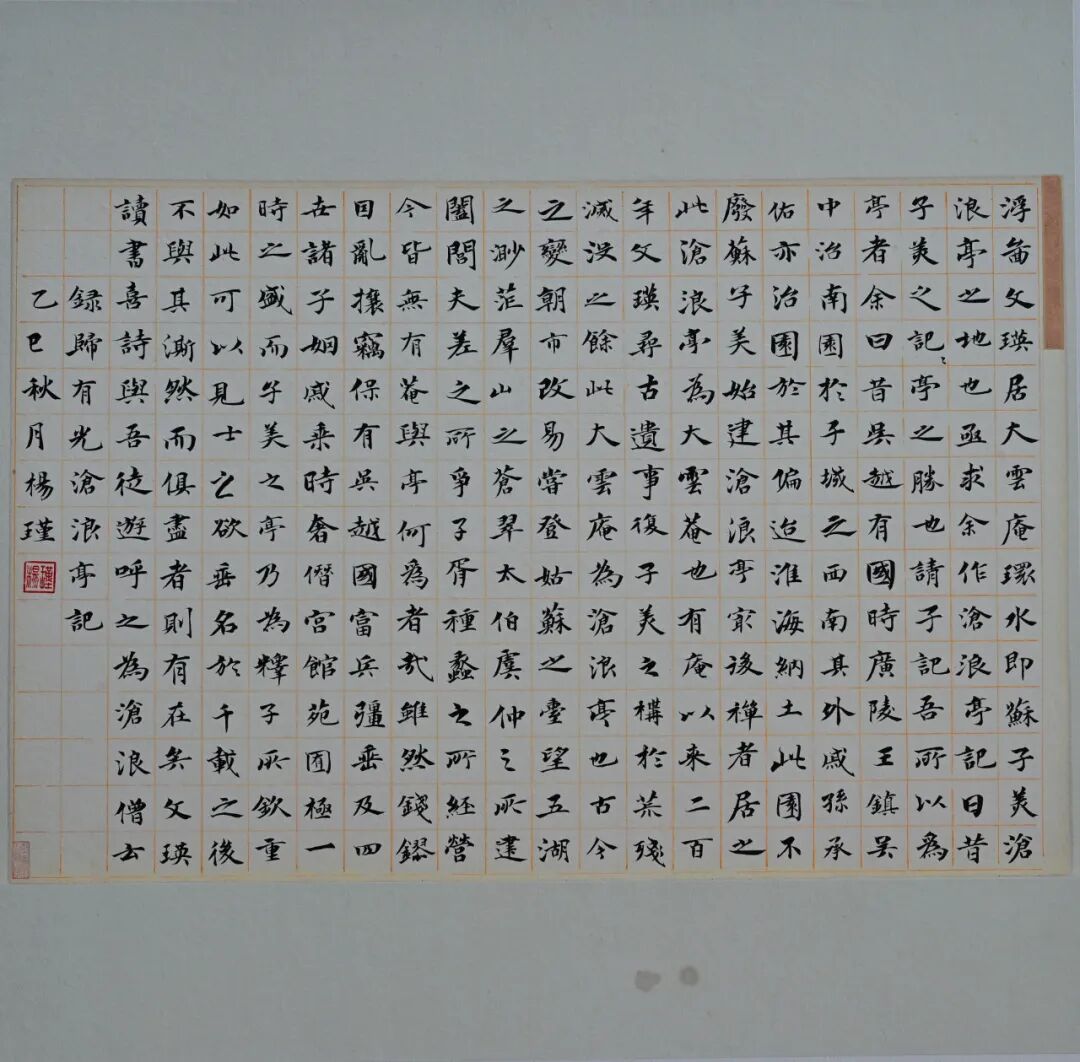 浮啚文瑛居大雲庵環水即蘇子美滄
浪亭之地也亟求余作滄浪亭記曰昔
子美之記〻亭之勝也請子記吾所以為
亭者余曰昔吳越有國時廣陵王鎮吳
中治南園於子城之西南其外戚孫承
佑亦治園於其偏迨淮海納土此園不
廢蘇子美始建滄浪亭冣後禪者居之
此滄浪亭為大雲菴也有庵以來二百
年文瑛尋古遺事復子美之構於荒殘
滅沒之餘此大雲庵為滄浪亭也古今
之變朝市改易嘗登姑蘇之臺望五湖
之渺茫羣山之蒼翠太伯虞仲之所建
闔閭夫差之所爭子胥種蠡之所經營
今皆無有菴與亭何為者哉雖然錢鏐
因亂攘竊保有吳越國富兵彊垂及四
世諸子姻戚乘時奢僭宮館苑囿極一
時之盛而子美之亭乃為釋子所欽重
如此可以見士之欲垂名於千載之後
不與其澌然而俱盡者則有在矣文瑛
讀書喜詩與吾徒遊呼之為滄浪僧云
錄歸有光滄浪亭記
乙巳秋月楊瑾
楊瑾